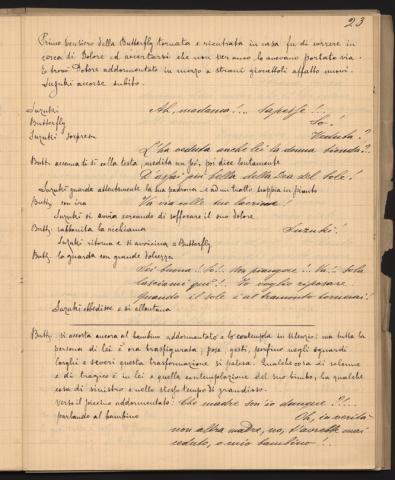 23
Primo pensiero della Butterfly tornata e rientrata in casa fu di correre in
cerca di Dolore ed accertarsi che non per anco lo avevano portato via.
E trovò Dolore addormentato in mezzo a strani giocattoli affatto nuovi.
Suzuki accorse subito.
Suzuki Ah, madama!... sapeste!..
Butterfly So!
Suzuki sorpresa Veduta?
L'ha veduta anche lei la donna bionda?..
Butt. accenna di sì colla testa, medita un pò, poi dice lentamente
E dessa più bella della Dea del Sole!
Suzuki guarda attentamente la sua padrona e ad un tratto scoppia in pianto
Butty con ira Va via colle tue lacrime!
Suzuki si avvia cercando di soffocare il suo dolore
Butty rabbonita la richiama Suzuki!
Suzuki ritorna e si avvicina a Butterfly
Butty la guarda con grande dolcezza
Sei buona!.. Sì!.. Non piangere!.. Va!.. Sola
lasciami qui!.. Io voglio riposare.
Quando il sole è al tramonto tornerai!
Suzuki obbedisce e si allontana
Butty si accosta ancora al bambino addormentato e lo contempla in silenzio; ma tutta la
persona di lei è ora trasfigurata; pose, gesti, perfino negli sguardi
larghi e severi questa trasformazione si palesa. Qualche cosa di solenne
e di tragico è in lei e quella contemplazione del suo bimbo, ha qualche
cosa di sinistro e nello stesso tempo di grandioso.
verso il piccino addormentato: Che madre son io dunque?!...
parlando al bambino Oh, in verità
non altra madre, no, t'avrebbe mai
ceduto, o mio bambino!...